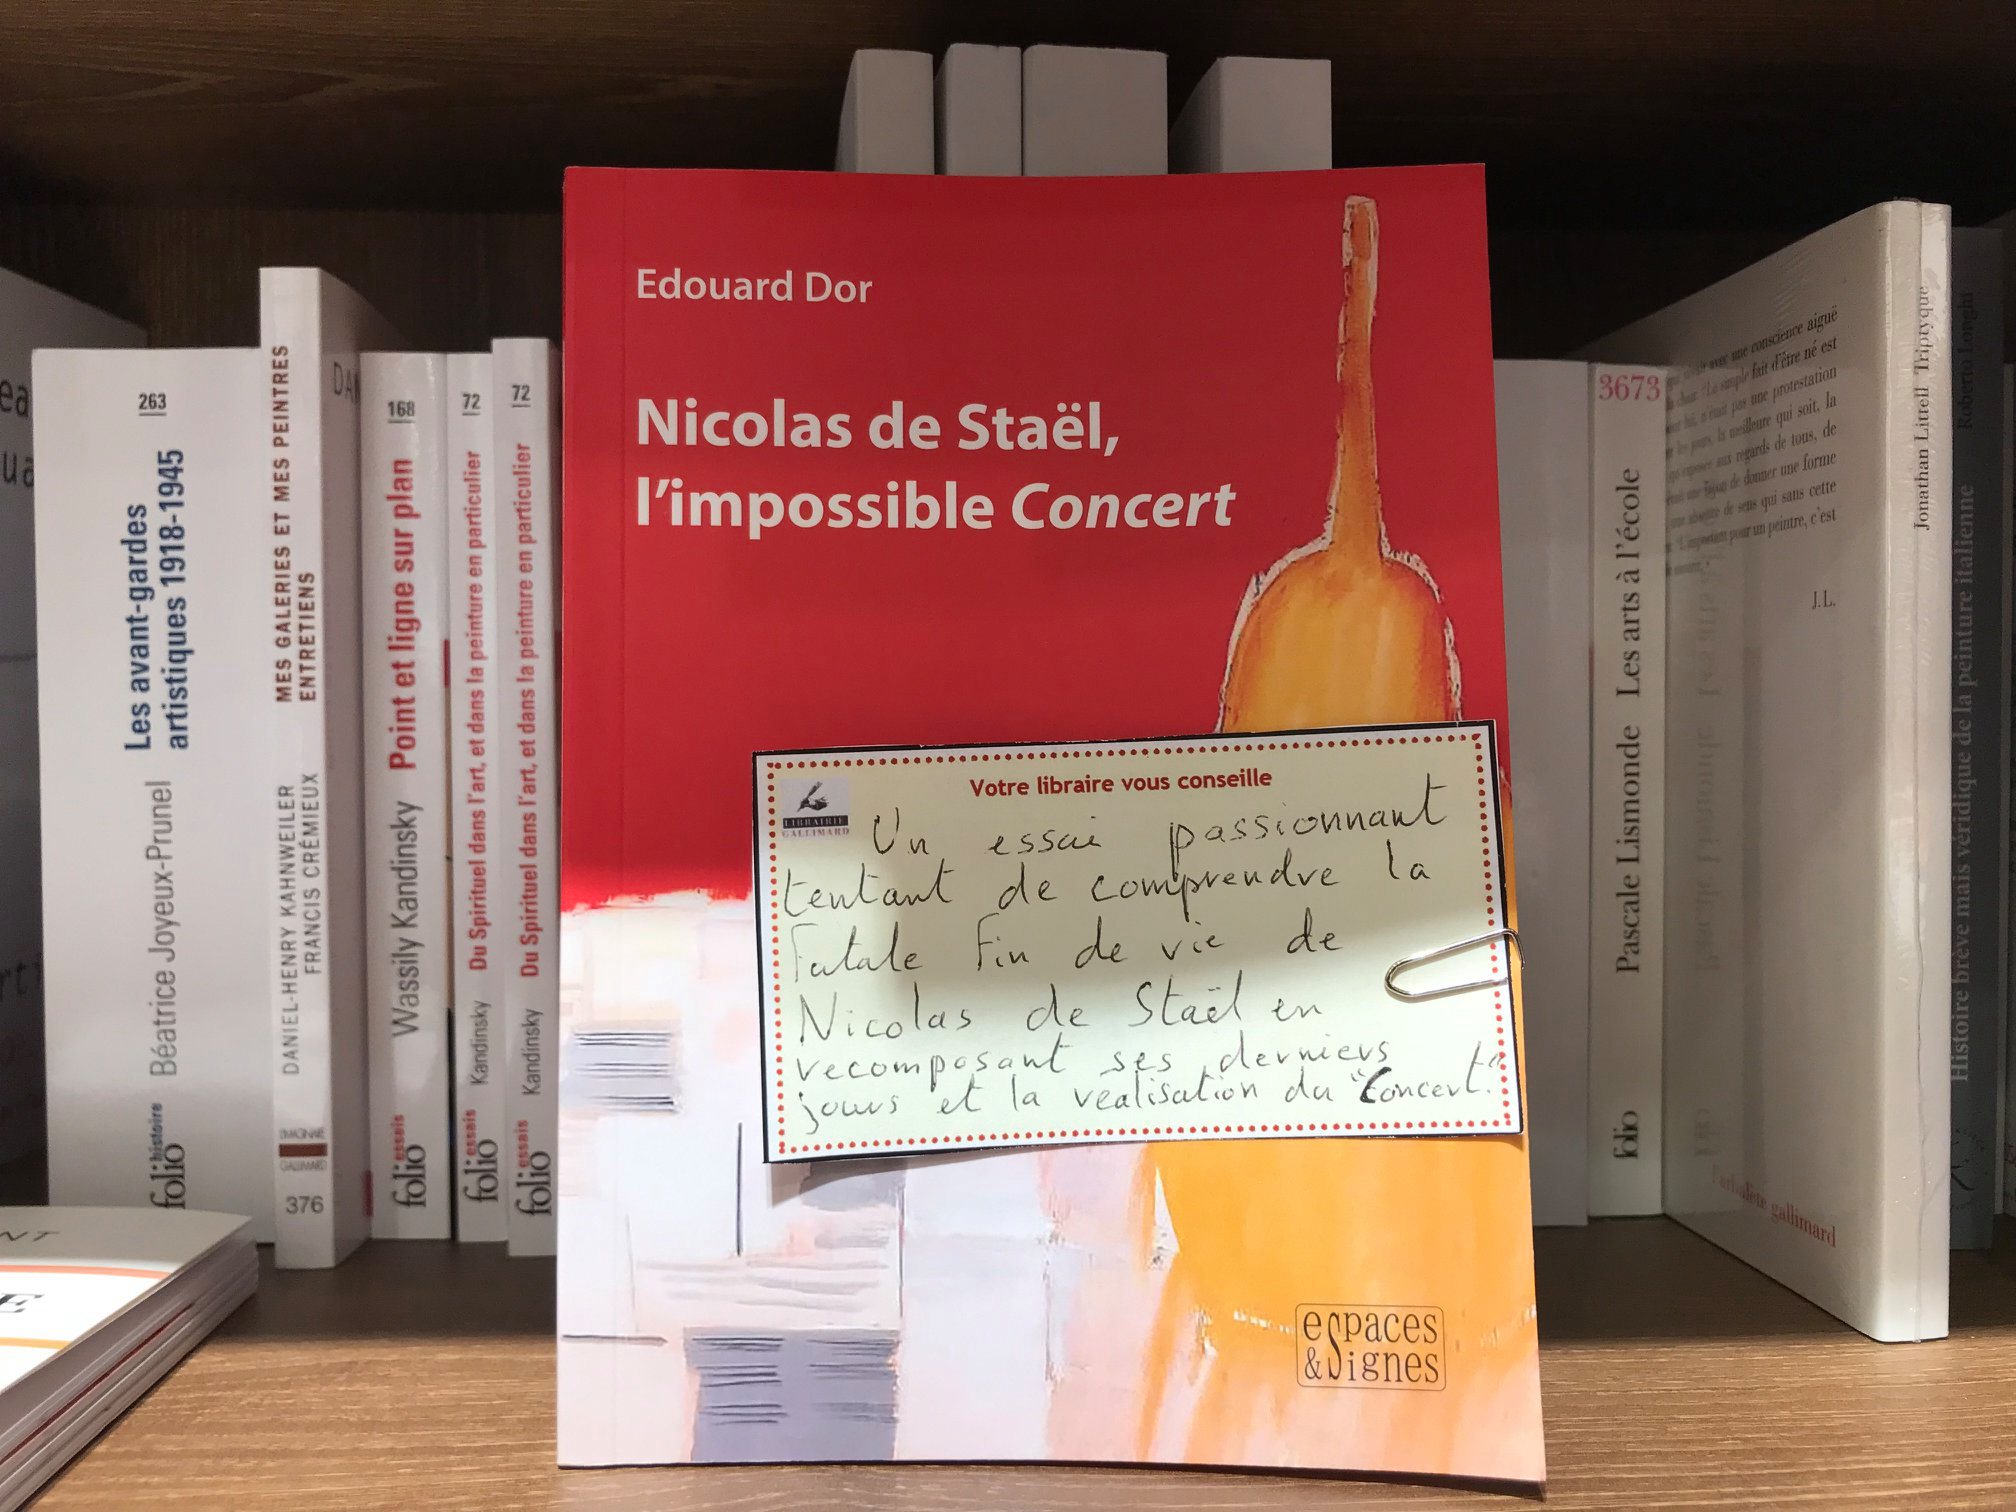 263
Les avant-gardes
artistiques 1918-1945
Béatrice Joyeux-Prunel
folio histoire
MES GALERIES ET MES PEINTRES
ENTRETIENS
DANIEL-HENRY KAHNWEILER
FRANCIS CRÉMIEUX
GALLIMARD
376
168
Point et ligne sur plan
Wassily Kandinsky
folio essais
72
Du Spirituel dans l'art, et dans la peinture en particulier
Kandinsky
folio essais
72
Du Spirituel dans l'art, et dans la peinture en particulier
Kandinsky
folio essais
Edouard Dor
Nicolas de Staël,
l'impossible Concert
Votre libraire vous conseille
LIBRAIRIE
GALLIMARD
Un essai passionnant
tentant de comprendre la
fatale fin de vie de
Nicolas de Staël en
recomposant ses derniers
jours et la réalisation du "Concert."
espaces
&Signes
3673
Pascale Lismonde Les arts à l'école
folio
avec une conscience aiguë
"Le simple fait d'être né est
une protestation
la meilleure qui soit, la
aux regards de tous, de
de donner une forme
de sens qui sans cette
pour un peintre, c'est
J.L.
l'arbalète gallimard
Jonathan Littell Triptyque
Roberto Longhi
Histoire brève mais véridique de la peinture italienne